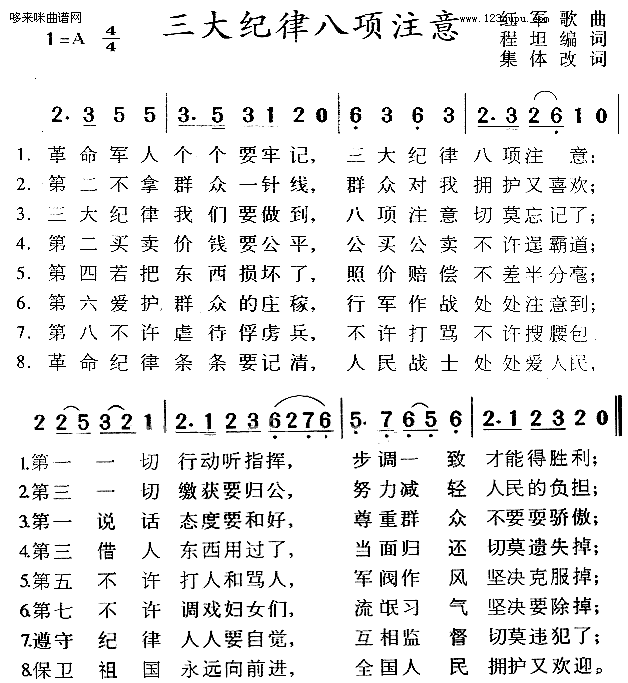 哆来咪曲谱网
1=A 4/4
三大纪律八项注意
www.123 pu.com
红军歌曲
程坦编词
集体改词
2· 3 5 5 | 3· 5 3 1 2 0 | 6 3 6 3 | 2· 3 2 6 1 0 |
1. 革命军人个个要牢记， 三大纪律八项注意；
2. 第二不拿群众一针线， 群众对我拥护又喜欢；
3. 三大纪律我们要做到， 八项注意切莫忘记了；
4. 第二买卖价钱要公平， 公买公卖不许逞霸道；
5. 第四若把东西损坏了， 照价赔偿不差半分毫；
6. 第六爱护群众的庄稼， 行军作战处处注意到；
7. 第八不许虐待俘虏兵， 不许打骂不许搜腰包
8. 革命纪律条条要记清， 人民战士处处爱人民，
2 2 5 3 2 1 | 2· 1 2 3 6 2 7 6 | 5· 7 6 5 6 | 2· 1 2 3 2 0 ‖
1.第一一切 行动听指挥， 步调一致 才能得胜利；
2.第三一切 缴获要归公， 努力减轻 人民的负担；
3.第一说话 态度要和好， 尊重群众 不要耍骄傲；
4.第三借人 东西用过了， 当面归还 切莫遗失掉；
5.第五不许 打人和骂人， 军阀作风 坚决克服掉；
6.第七不许 调戏妇女们， 流氓习气 坚决要除掉；
7.遵守纪律 人人要自觉， 互相监督 切莫违犯了；
8.保卫祖国 永远向前进， 全国人民 拥护又欢迎。